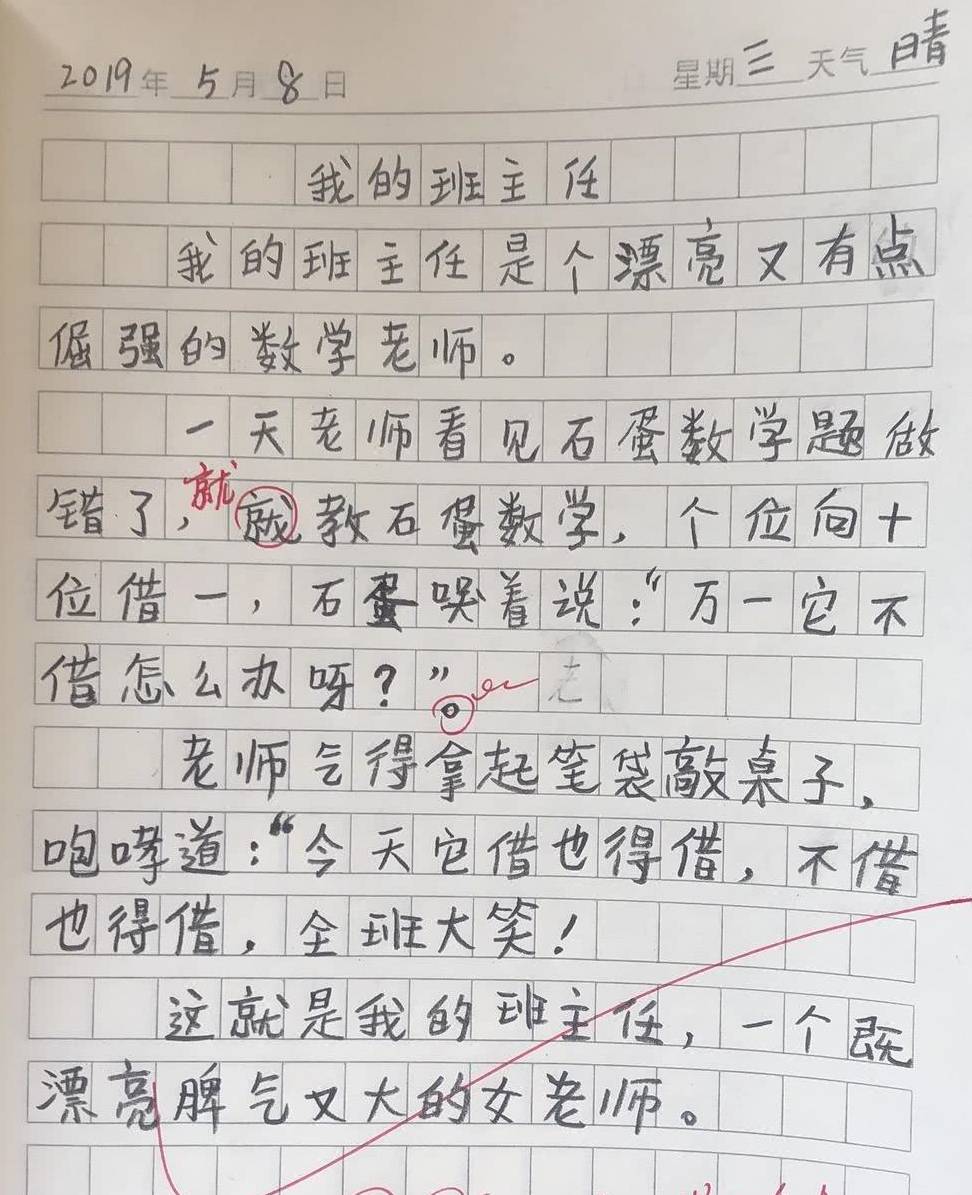 2019年 5月 8日 星期三 天气 晴
我的班主任
我的班主任是个漂亮又有点
倔强的数学老师。
一天老师看见石蛋数学题做
错了,就就教石蛋数学,个位向十
位借一,石蛋哭着说:“万一它不
借怎么办呀?”。老
老师气得拿起笔袋敲桌子,
咆哮道:“今天它借也得借,不借
也得借,全班大笑!
这就是我的班主任,一个既
漂亮脾气又大的女老师。